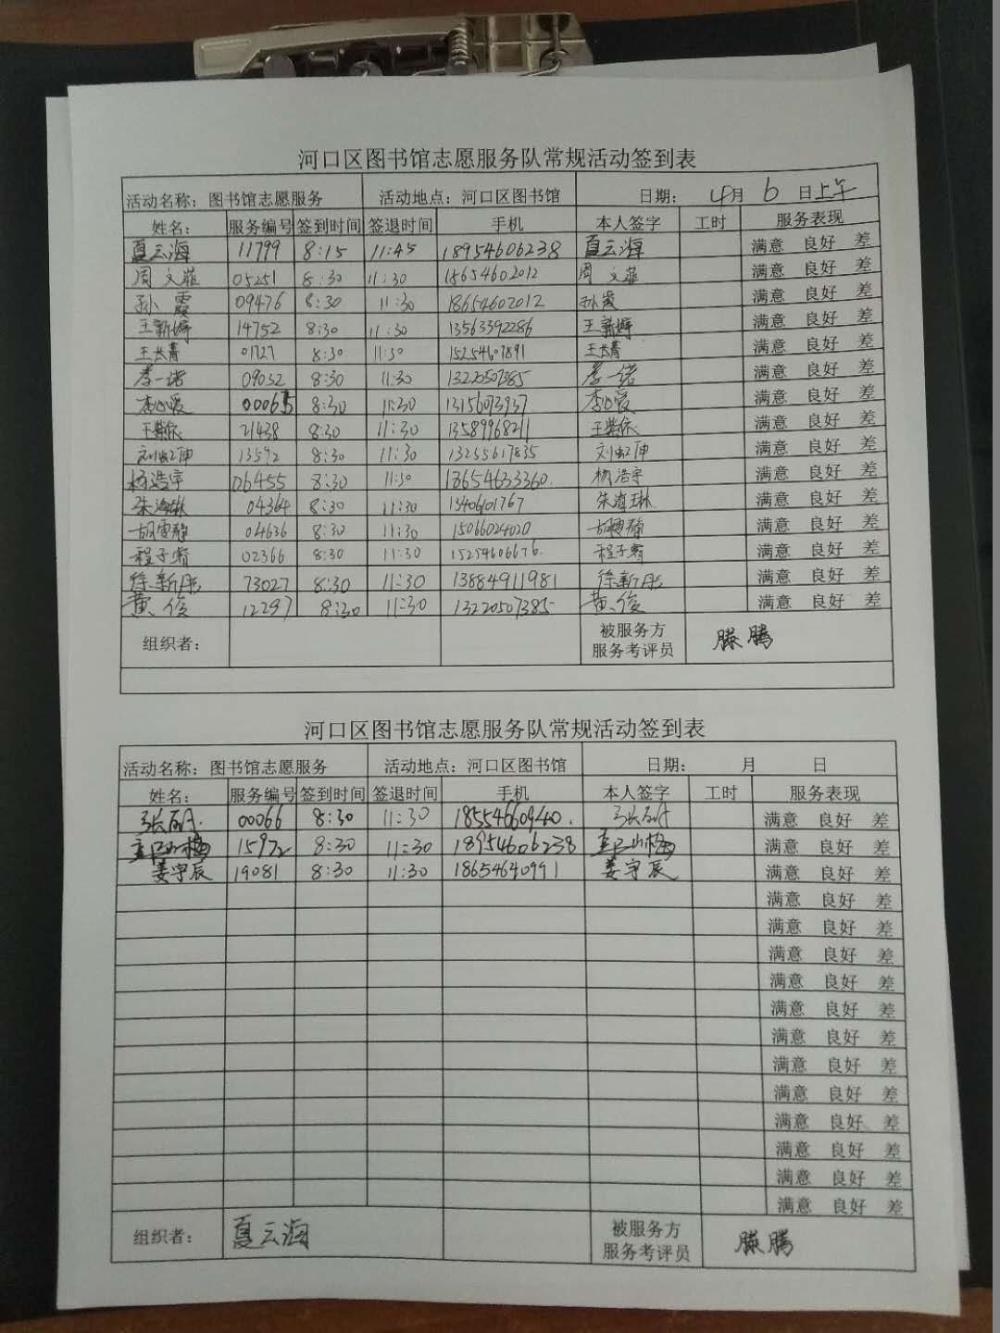 河口区图书馆志愿服务队常规活动签到表
活动名称：图书馆志愿服务 活动地点：河口区图书馆 日期： 4月 6 日上午
姓名： 服务编号 签到时间 签退时间 手机 本人签字 工时 服务表现
夏云海 11799 8:15 11:45 18954606238 夏云海 满意 良好 差
周文 05251 8:30 11:30 18654602012 周文 满意 良好 差
孙霞 09476 8:30 11:30 18654602012 孙霞 满意 良好 差
王新婷 14752 8:30 11:30 13563392286 王新婷 满意 良好 差
王长青 01727 8:30 11:30 15254607891 王长青 满意 良好 差
李一诺 09032 8:30 11:30 13220507385 李一诺 满意 良好 差
李心爱 00065 8:30 11:30 13156093937 李心爱 满意 良好 差
王紫依 21438 8:30 11:30 13589968211 王紫依 满意 良好 差
刘 13592 8:30 11:30 13255617835 刘 满意 良好 差
杨浩宇 06455 8:30 11:30 18654633360. 杨浩宇 满意 良好 差
朱海琳 04364 8:30 11:30 朱海琳 满意 良好 差
胡雪静 04636 8:30 11:30 15066024020 胡雪静 满意 良好 差
程子 02366 8:30 11:30 15254606676. 程子 满意 良好 差
徐新彤 73027 8:30 11:30 13884911981 徐新彤 满意 良好 差
黄俊 12297 8:30 11:30 13220507385 黄俊 满意 良好 差
组织者： 被服务方 服务考评员 滕腾
河口区图书馆志愿服务队常规活动签到表
活动名称：图书馆志愿服务 活动地点：河口区图书馆 日期： 月 日
姓名： 服务编号 签到时间 签退时间 手机 本人签字 工时 服务表现
张丽丹. 00066 8:30 11:30 18554660940. 张丽丹 满意 良好 差
15972 8:30 11:30 18954606238 满意 良好 差
姜宇辰 19081 8:30 11:30 18654640991 姜宇辰 满意 良好 差
满意 良好 差
满意 良好 差
满意 良好 差
满意 良好 差
满意 良好 差
满意 良好 差
满意 良好 差
满意 良好 差
满意 良好 差
满意 良好 差
满意 良好 差
满意 良好 差
组织者： 夏云海 被服务方 服务考评员 滕腾